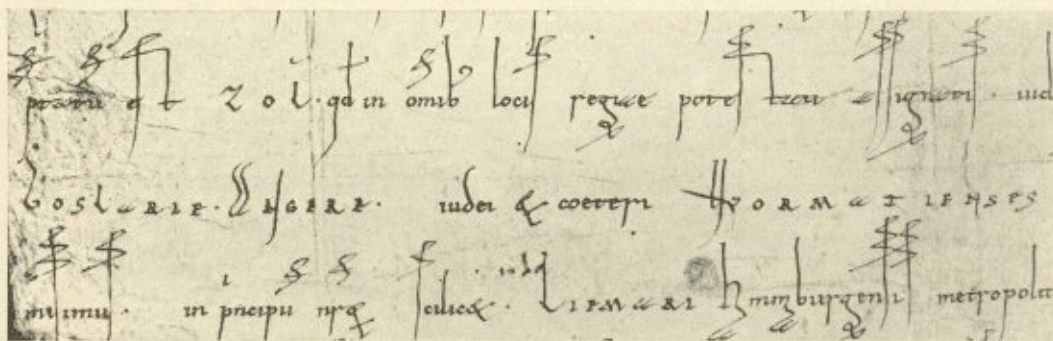 est zol · qd in omib locis regiae potestati assignatis · iud
Goslarie · Angere · iudei & coeteri Wormatienses
misimus · in pncipu scilic& · Liemari metropolit